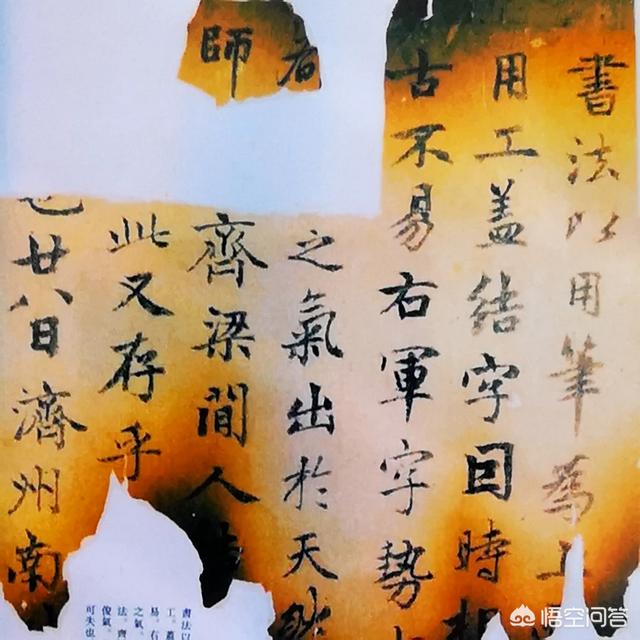 書法以用筆為上
用工盖结字因時相
古不易右軍字勢
者
之氣出於天
師
齊梁間人
此又存乎
廿八日濟州南
書法以
工。蓋
易。右
之氣。
法。齊
俊氣。
可失也
悟空问答